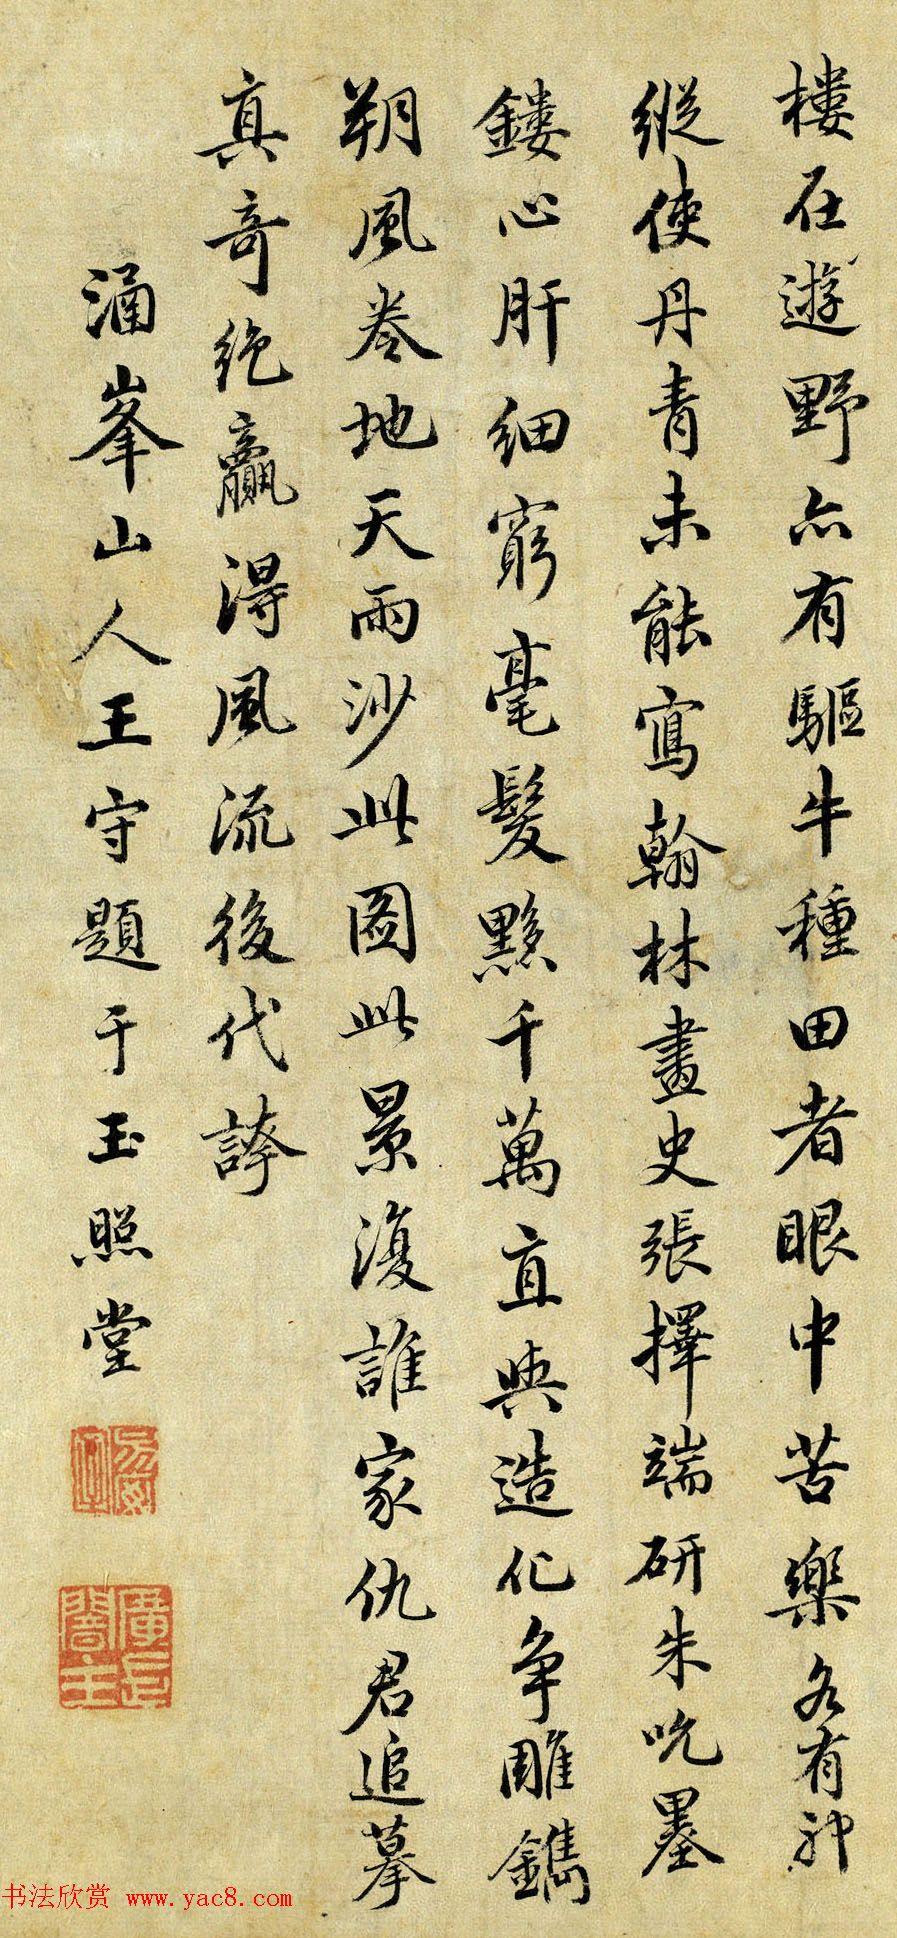 樓在遊野亦有驅牛種田者眼中苦樂各有神
縱使丹青未能寫翰林畫史張擇端研朱吮墨
鏤心肝細窮毫髮夥千萬直與造化爭雕鐫
朔風卷地天雨沙此圖此景復誰家仇君追摹
真奇絶贏得風流後代誇
涌峯山人王守題于玉照堂
书法欣赏 www.yac8.com